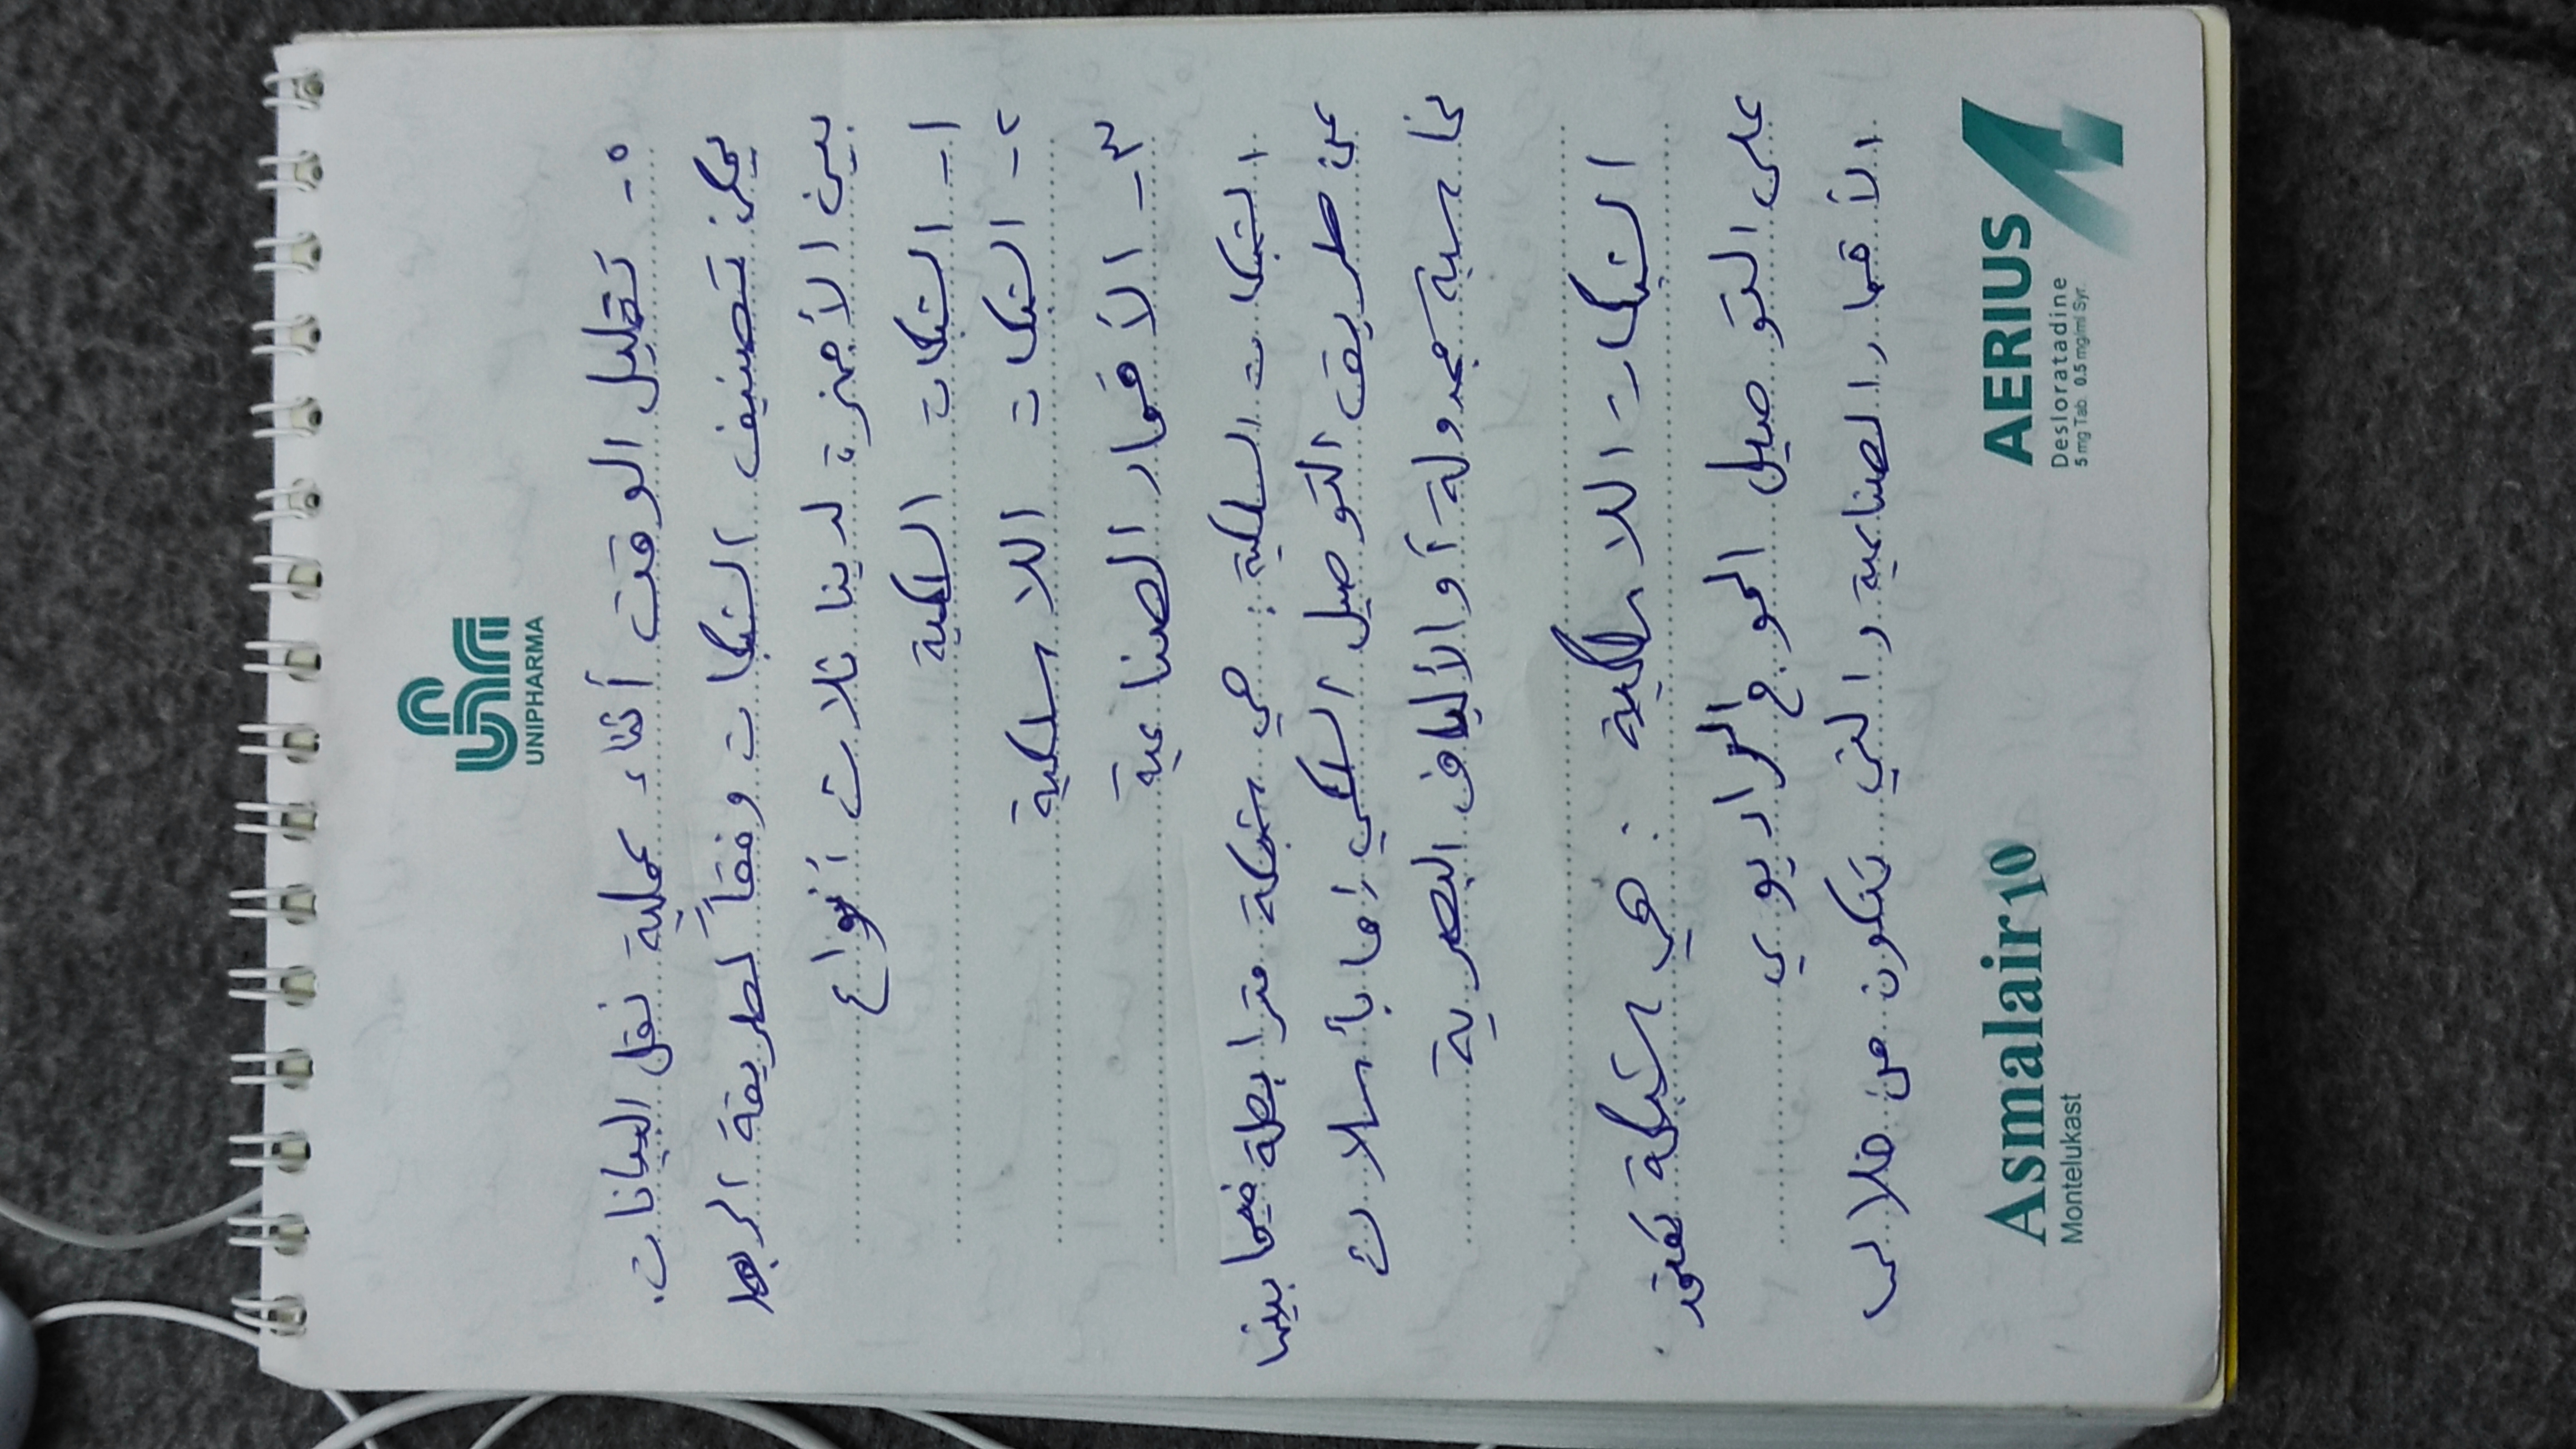 UNIPHARMA
٥- تقليل الوقت أثناء عملية نقل البيانات.
يمكن تصنيف الشبكات وفقاً لطريقة الربط
بين الأجهزة لدينا ثلاث أنواع
١- الشبكات السلكية
٢- الشبكات اللاسلكية
٣- الأقمار الصناعية
الشبكات السلكية: هي شبكة مترابطة فيما بينها
عن طريق التوصيل السلكي إما بأسلاك
نحاسية مجدولة أو الألياف البصرية
الشبكات اللاسلكية : هي شبكة تعتمد
على التوصيل الموج الراديوي
الأقمار الصناعية والتي تتكون من خلالها
Asmalair 10
Montelukast
AERIUS
Desloratadine
5 mg Tab. 0.5 mg/ml Syr.